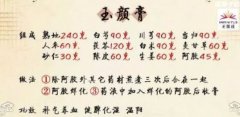 玉颜膏
组成 熟地240克 白芍90克 川芎90克 当归90克
人参60克 茯苓120克 白术90克 炙甘草60克
砂仁30克 陈皮60克 生姜60克 阿胶45克
做法 ①除阿胶外其它药材煎煮三次后合在一起
②阿胶烊化 ③药液中加入烊化的阿胶后收膏
功效 补气养血